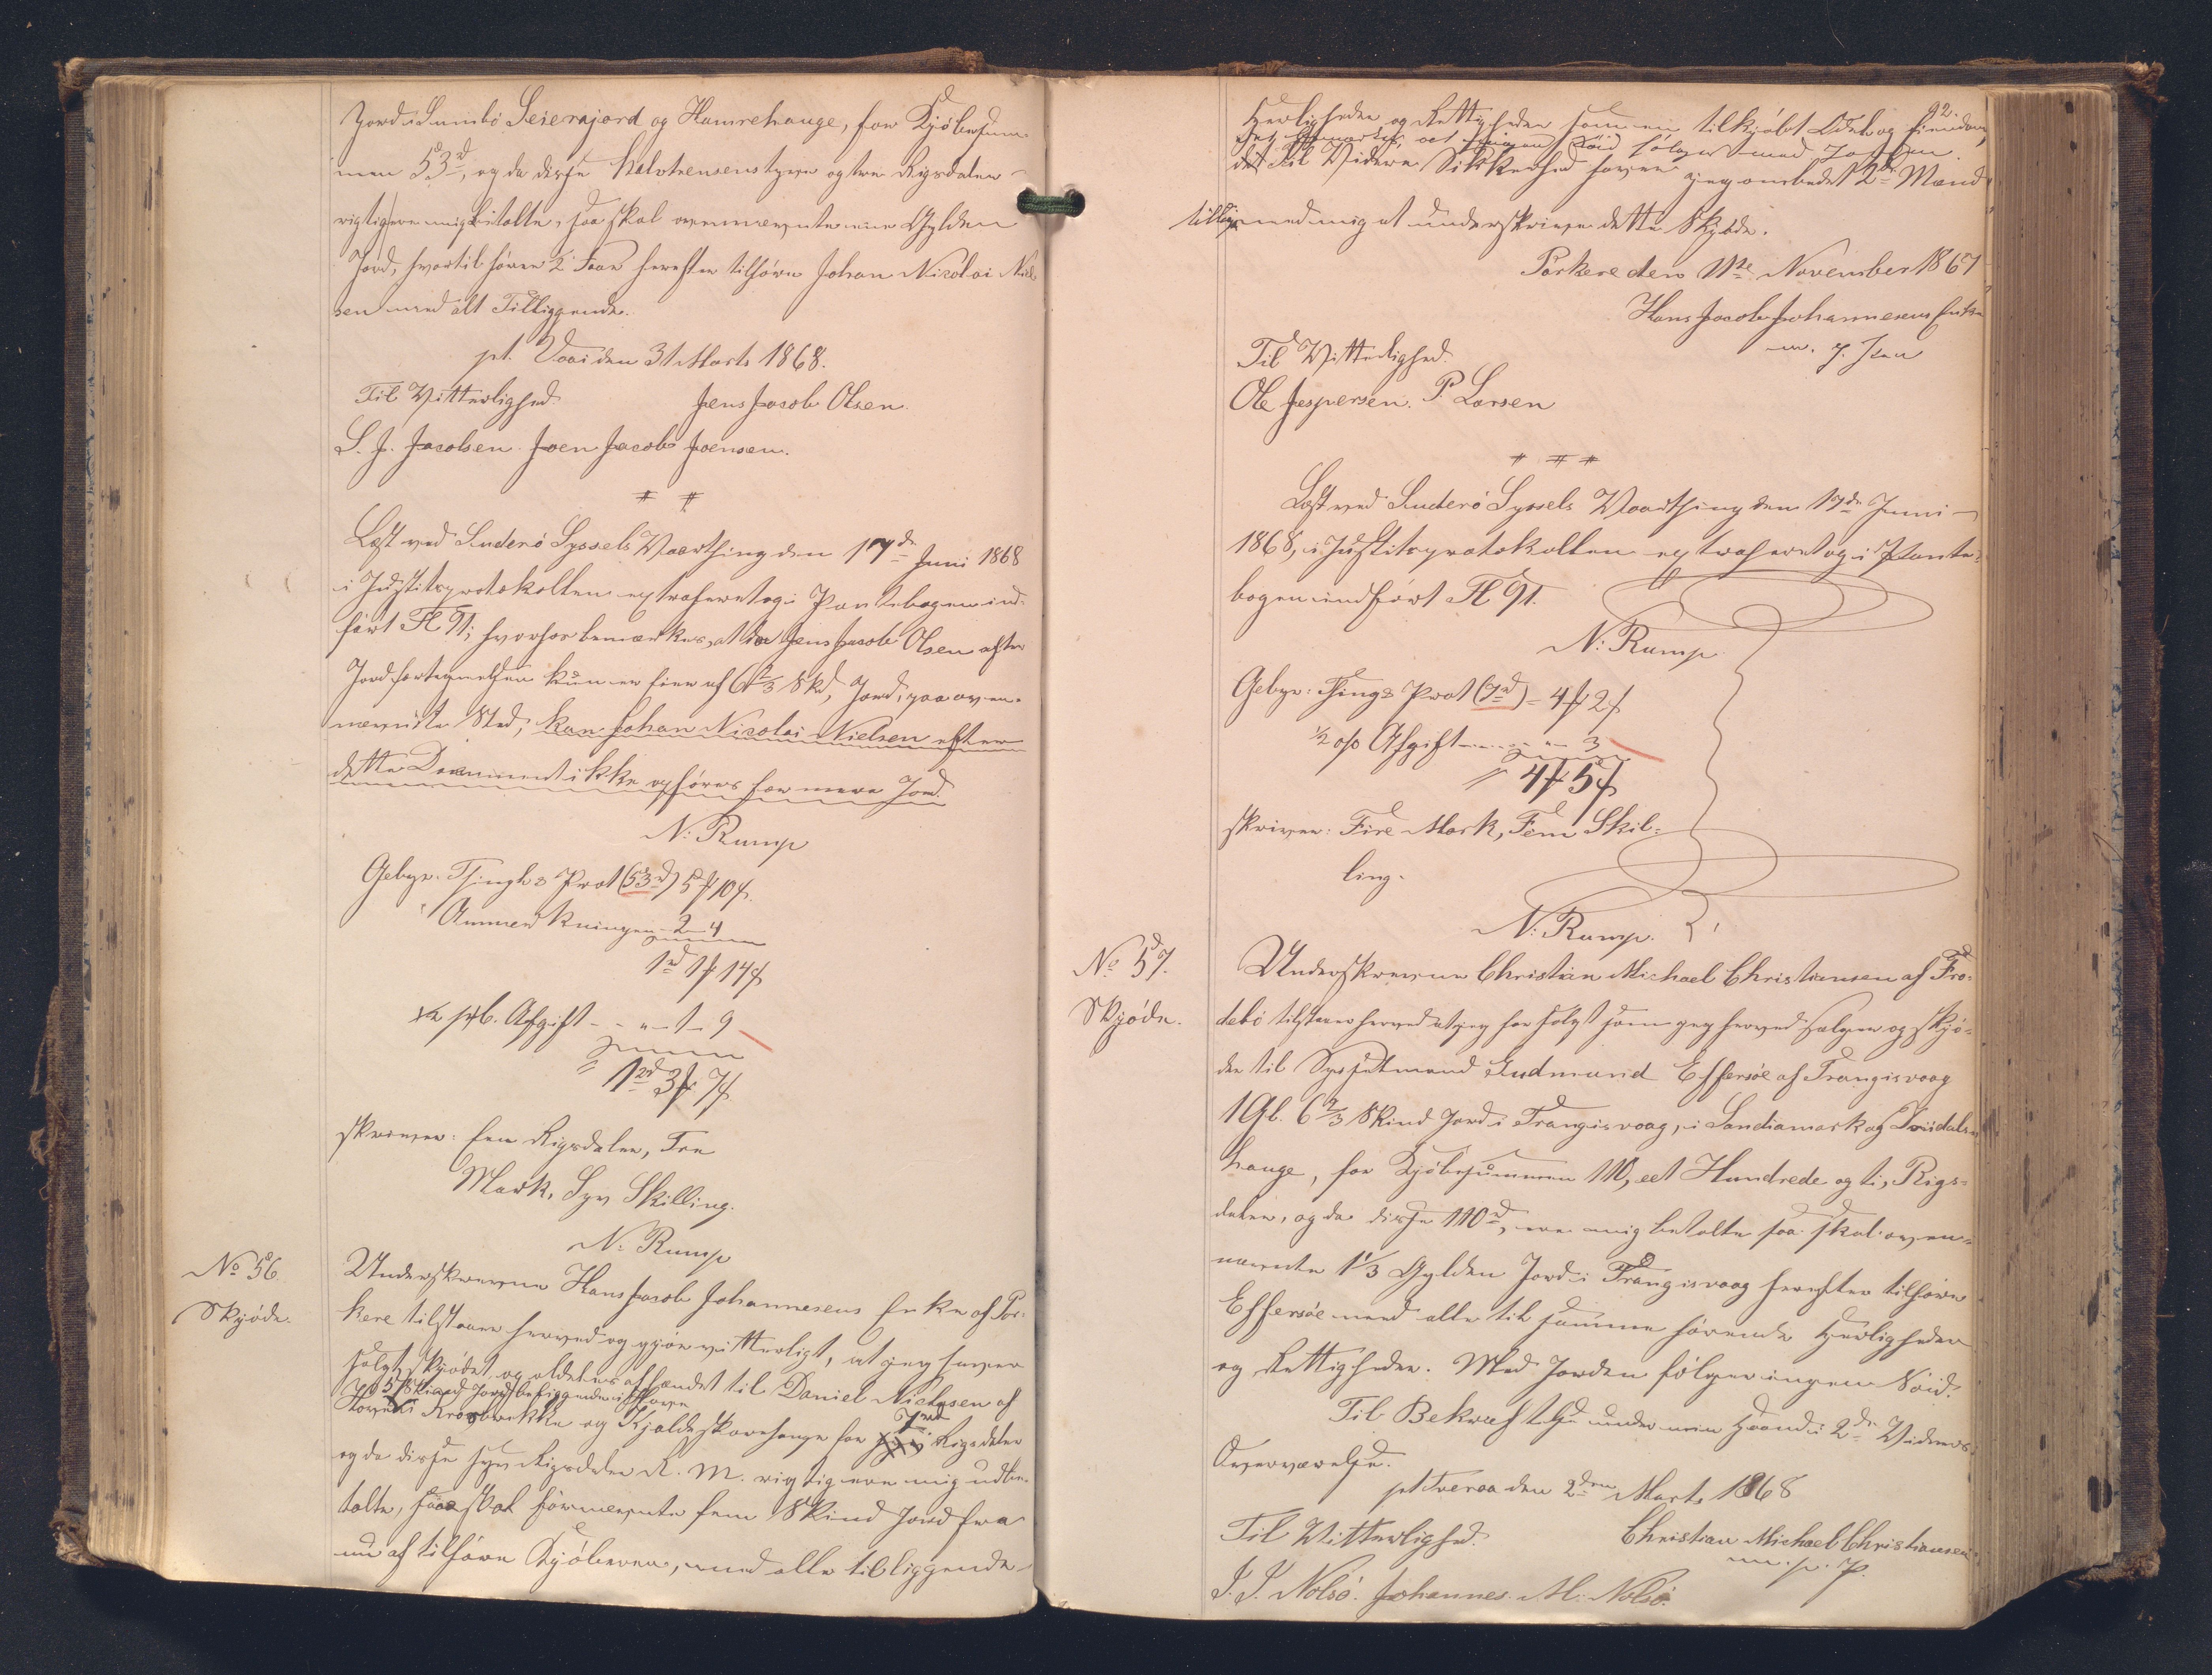 Jord i Sumbö Seierajord og Hamrehauge, for Kjöbesum-
men 53 rd, og da disse halvtredsenstyve og tre Rigsdaler
rigtig ere mig betalte, saa skal ovennævnte een Gylden
Jord, hvortil hörer 2 Faar herefter tilhöre Johan Nicolai Niel-
sen med alt Tilliggende.
pt. Vaai den 31 Marts 1868.
Til Vitterlighed. Jens Jacob Olsen.
S. J. Jacobsen. Joen Jacob Joensen.
Læst ved Suderö Syssels Vaarthing den 17de Juni 1868
i Justitsprotokollen extraheret og i Pantebogen ind-
fört Fl 91; hvorhos bemærkes, at da Jens Jacob Olsen efter
Jordfortegnelsen kun er Eier af 6 2/3 Skd, Jord, paa oven-
nævnte Sted, kan Johan Nicolai Nielsen efter
dette Document ikke opföres for mere Jord.
N: Rump
Gebyr. Thingl & Prot (53 rd) 5 # 10 ß.
Anmærkningen - 2 - 4
1 rd 1 # 14 ß
1/2 pCt. Afgift - - " - 1 - 9
1 rd 3 # 7 ß
skriver: Een Rigsdaler, Tre
Mark, Syv Skilling.
N: Rump
No 56.
Skjöde.
Underskrevne Hans Jacob Johannesens Enke af Por-
kere tilstaaer herved og gjör vitterligt, at jeg haver
solgt, skjödet og aldeles afhændet til Daniel Niclasen af
Hove 5 Skind Jord beliggende i Hove
i Krosbrekke og Kjaldeskorehauge for 7 rd Rigsdaler
og da disse syv Rigsdaler R. M. rigtig ere mig udbe-
talte, saa skal formævnte fem Skind Jord fra
nu af tilhöre Kjöberen, med alle tilliggende
92.
Herligheder og Rettigheder som en tilkjöbt Odel og Eiendom,
det bemærkes, at ingen Söid fölger med Jorden.
Til Videre Sikkerhed haver jeg ombedet 2de Mænd
tillige med mig at underskrive dette Skjöde.
Porkere den 11te November 1867
Hans Jacob Johannesens Enke
m. f. Pen
Til Vitterlighed.
Ole Jespersen. P. Larsen
Læst ved Suderö Syssels Vaarthing den 17de Juni
1868, i Justitsprotokollen extraheret og i Pante-
bogen indfört Fl 91.
N: Rump
Gebyr: Thingl & Prot (7 rd) - 4 # 2 ß
1/2 o/o Afgift - - - - " - 3
4 # 5 ß
skriver: Fire Mark, Fem Skil-
ling.
N. Rump.
No 57.
Skjöde.
Underskrevne Christian Michael Christiansen af Fro-
debö tilstaaer herved at jeg har solgt som jeg herved sælger og skjö-
der til Sysselmand Gudmund Effersöe af Trangisvaag
1 Gl. 6 2/3 Skind Jord i Trangisvaag, i Sandiamark og Dvüdals-
hauge, for Kjöbesummen 110, eet Hundrede og ti, Rigs-
daler, og da disse 110 rd, ere mig betalte saa skal oven-
nævnte 1 1/3 Gylden Jord i Trangisvaag herefter tilhöre
Effersöe med alle til samme hörende Herligheder
og Rettigheder. Med Jorden fölger ingen Söid.
Til Bekræftelse under min Haand i 2de Vidners
Overværelse.
pt Tveraa den 2den Marts 1868
Til Vitterlighed. Christian Michael Christiansen
m. p. P.
J. J. Nolsö. Johannes M. Nolsö.